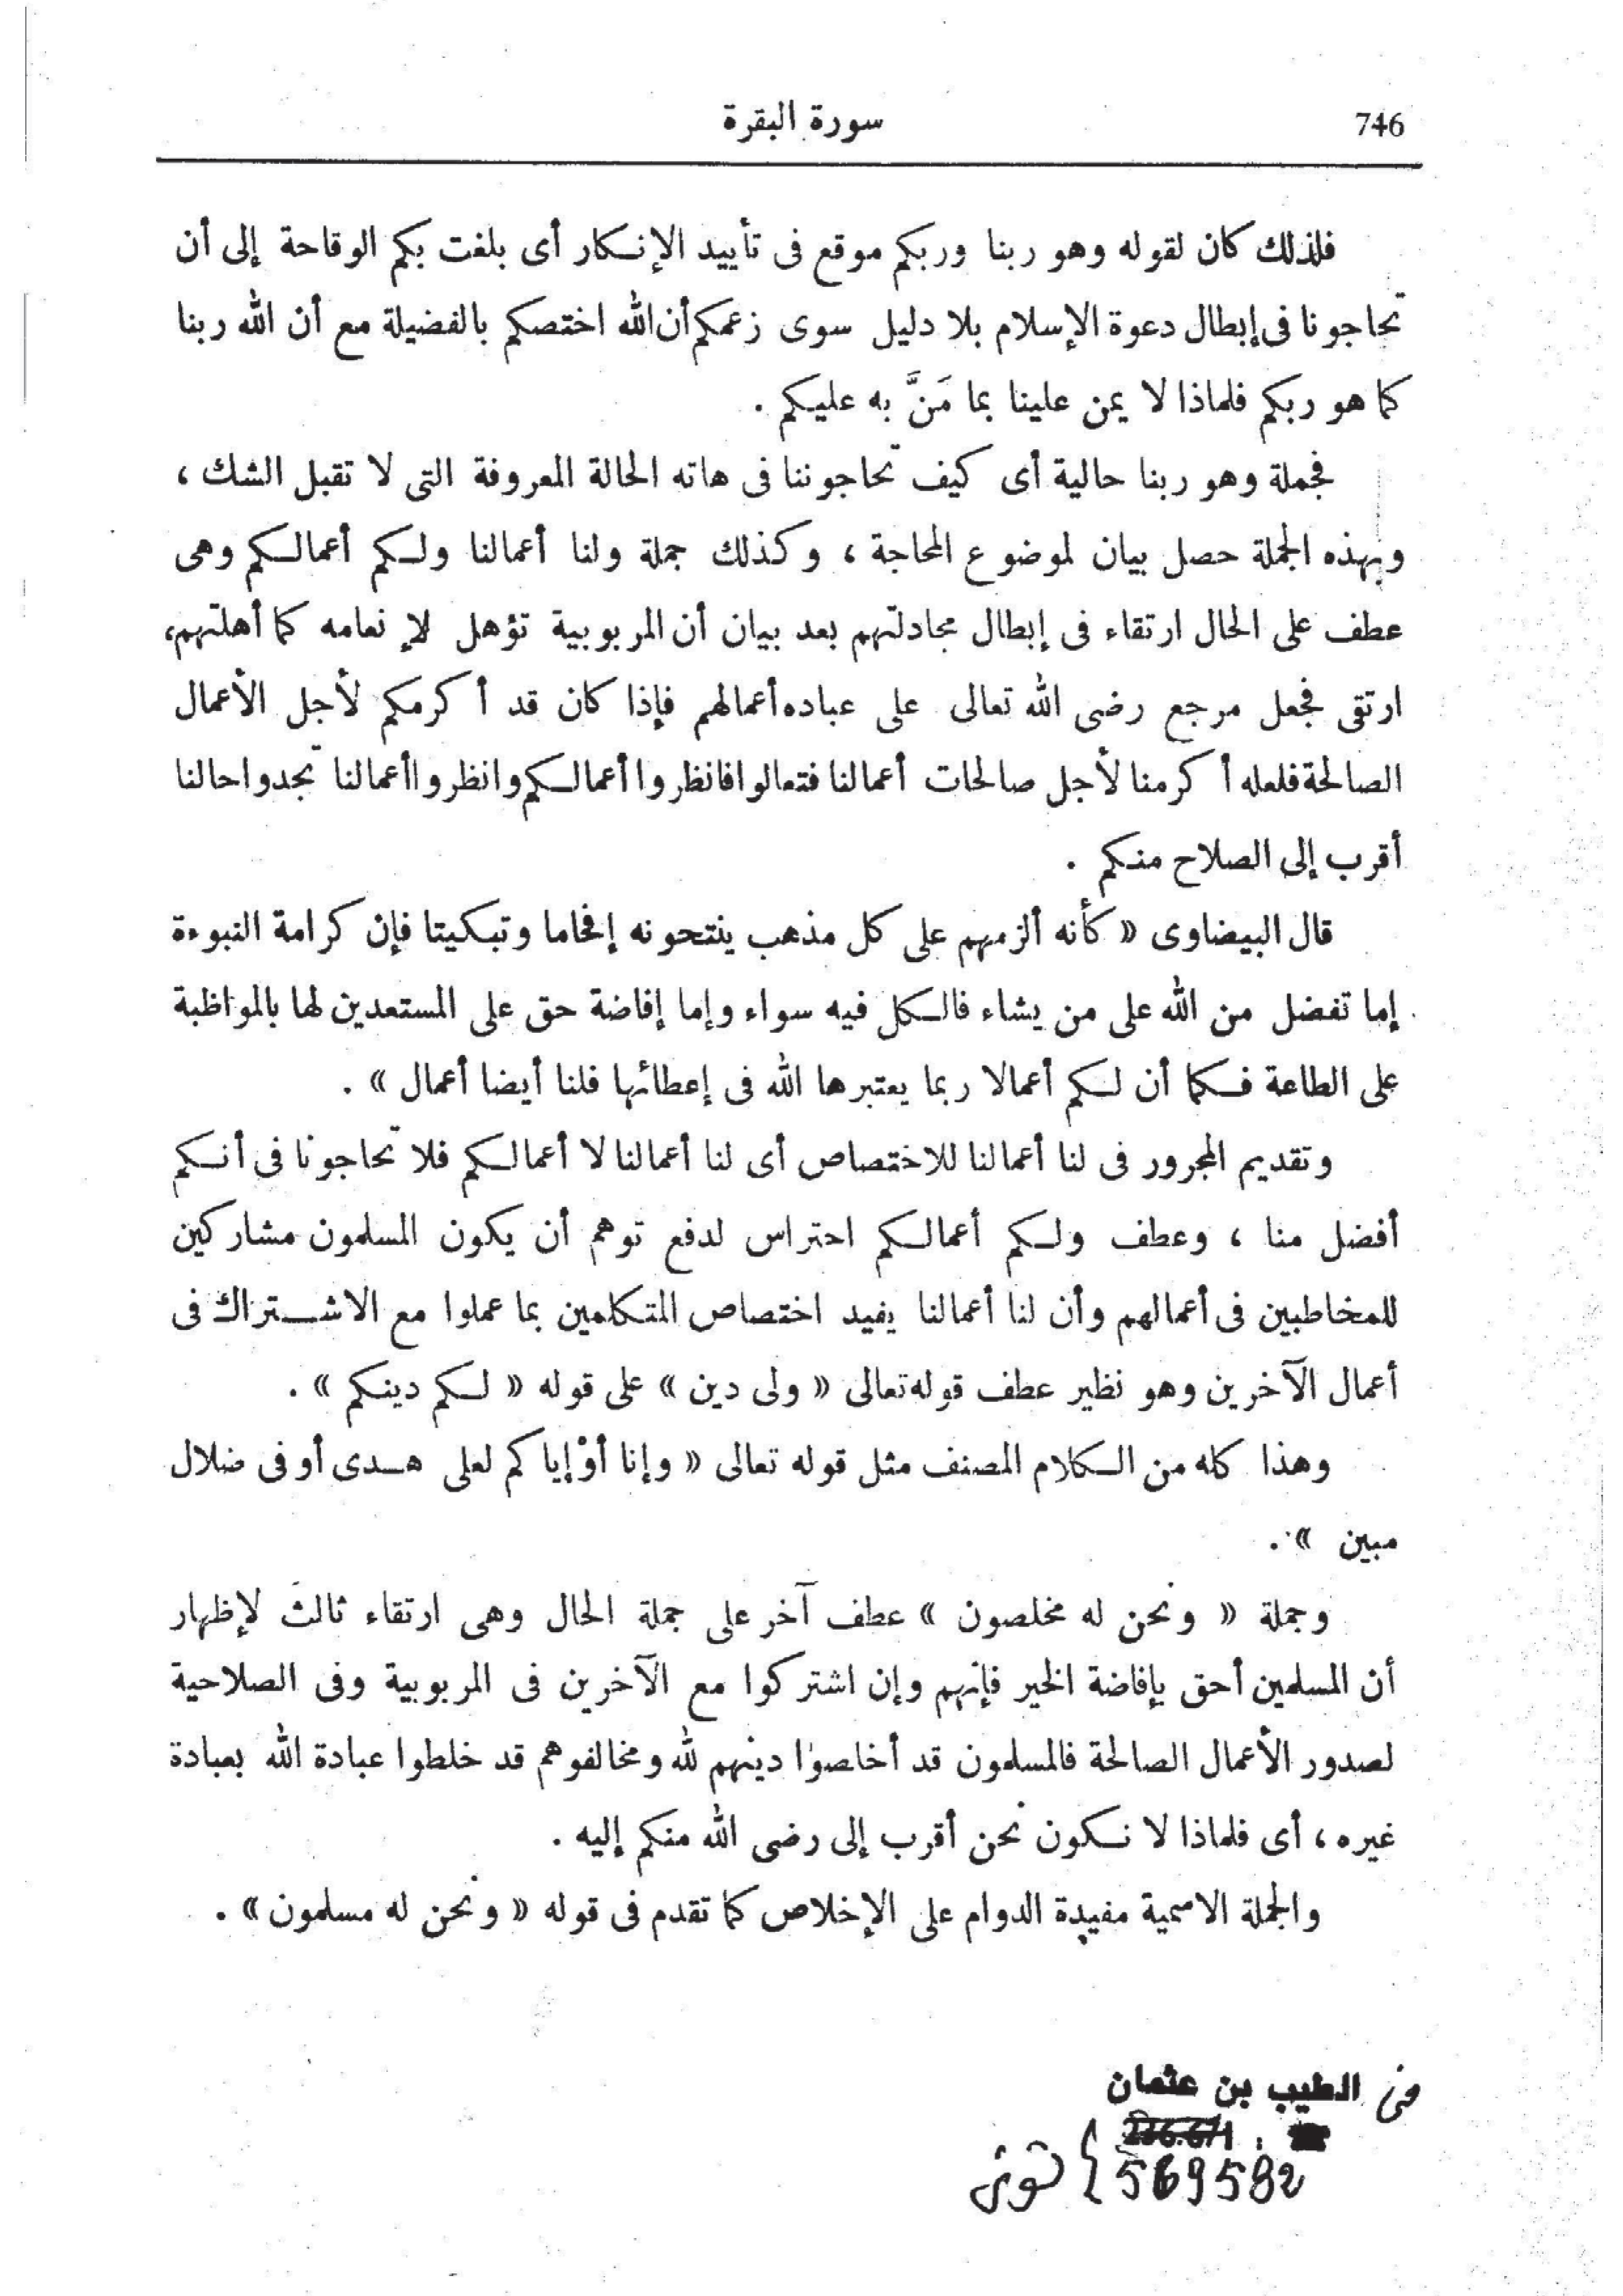 746
سورة البقرة
فلذلك كان لقوله وهو ربنا وربكم موقع فى تأييد الإنكار أى بلغت بكم الوقاحة إلى أن
تحاجونا فى إبطال دعوة الإسلام بلا دليل سوى زعمكم أن الله اختصكم بالفضيلة مع أن الله ربنا
كما هو ربكم فلماذا لا يمن علينا بما مَنَّ به عليكم .
فجملة وهو ربنا حالية أى كيف تحاجوننا فى هاته الحالة المعروفة التى لا تقبل الشك ،
وبهذه الجملة حصل بيان لموضوع المحاجة ، وكذلك جملة ولنا أعمالنا ولكم أعمالكم وهى
عطف على الحال ارتقاء فى إبطال مجادلتهم بعد بيان أن المربوبية تؤهل لإنعامه كما أهلتهم،
ارتقى فجعل مرجع رضى الله تعالى على عباده أعمالهم فإذا كان قد أكرمكم لأجل الأعمال
الصالحة فلعله أكرمنا لأجل صالحات أعمالنا فتعالوا فانظروا أعمالكم وانظروا أعمالنا تجدوا حالنا
أقرب إلى الصلاح منكم .
قال البيضاوى « كأنه ألزمهم على كل مذهب ينتحونه إفحاما وتبكيتا فإن كرامة النبوءة
إما تفضل من الله على من يشاء فالكل فيه سواء وإما إفاضة حق على المستعدين لها بالمواظبة
على الطاعة فكما أن لكم أعمالا ربما يعتبرها الله فى إعطائها فلنا أيضا أعمال » .
وتقديم المجرور فى لنا أعمالنا للاختصاص أى لنا أعمالنا لا أعمالكم فلا تحاجونا فى أنكم
أفضل منا ، وعطف ولكم أعمالكم احتراس لدفع توهم أن يكون المسلمون مشاركين
للمخاطبين فى أعمالهم وأن لنا أعمالنا يفيد اختصاص المتكلمين بما عملوا مع الاشتراك فى
أعمال الآخرين وهو نظير عطف قوله تعالى « ولى دين » على قوله « لكم دينكم » .
وهذا كله من الكلام المصنف مثل قوله تعالى « وإنا أوْ إياكم لعلى هدى أو فى ضلال
مبين » .
وجملة « ونحن له مخلصون » عطف آخر على جملة الحال وهى ارتقاء ثالث لإظهار
أن المسلمين أحق بإفاضة الخير فإنهم وإن اشتركوا مع الآخرين فى المربوبية وفى الصلاحية
لصدور الأعمال الصالحة فالمسلمون قد أخلصوا دينهم لله ومخالفوهم قد خلطوا عبادة الله بعبادة
غيره ، أى فلماذا لا نكون نحن أقرب إلى رضى الله منكم إليه .
والجملة الاسمية مفيدة الدوام على الإخلاص كما تقدم فى قوله « ونحن له مسلمون » .
الطيب بن عثمان
236.671
569582